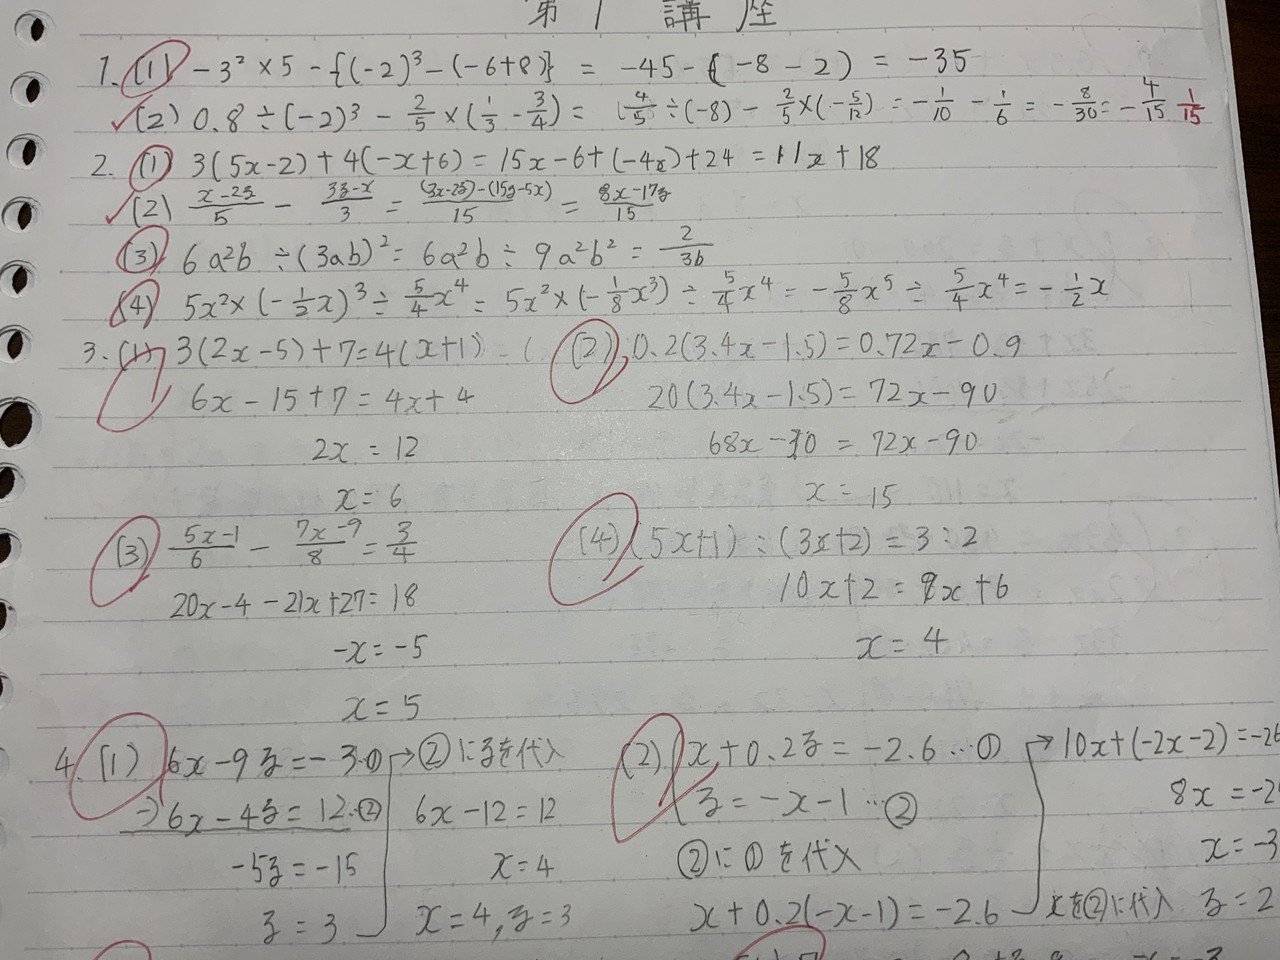 第1講座
1. (1) -3² × 5 - {(-2)³ - (-6+8)} = -45 - (-8-2) = -35
(2) 0.8 ÷ (-2)³ - 2/5 × (1/3 - 3/4) = 4/5 ÷ (-8) - 2/5 × (-5/12) = -1/10 - 1/6 = -8/30 = -4/15 1/15
2. (1) 3(5x-2) + 4(-x+6) = 15x-6+(-4x)+24 = 11x+18
(2) (x-2y)/5 - (3y-x)/3 = ((3x-2y)-(15y-5x))/15 = (8x-17y)/15
(3) 6a²b ÷ (3ab)² = 6a²b ÷ 9a²b² = 2/3b
(4) 5x² × (-1/2x)³ ÷ 5/4x⁴ = 5x² × (-1/8x³) ÷ 5/4x⁴ = -5/8x⁵ ÷ 5/4x⁴ = -1/2x
3. (1) 3(2x-5)+7=4(x+1)
6x-15+7=4x+4
2x=12
x=6
(2) 0.2(3.4x-1.5)=0.72x-0.9
20(3.4x-1.5)=72x-90
68x-30=72x-90
x=15
(3) (5x-1)/6 - (7x-9)/8 = 3/4
20x-4-21x+27=18
-x=-5
x=5
(4) (5x+1):(3x+2)=3:2
10x+2=9x+6
x=4
4. (1) 6x-9y=-3…①
-) 6x-4y=12…②
-5y=-15
y=3
→②にyを代入
6x-12=12
x=4
x=4, y=3
(2) x+0.2y=-2.6…①
y=-x-1…②
②に①を代入
x+0.2(-x-1)=-2.6
→10x+(-2x-2)=-26
8x=-2
x=-3
xを②に代入 y=2